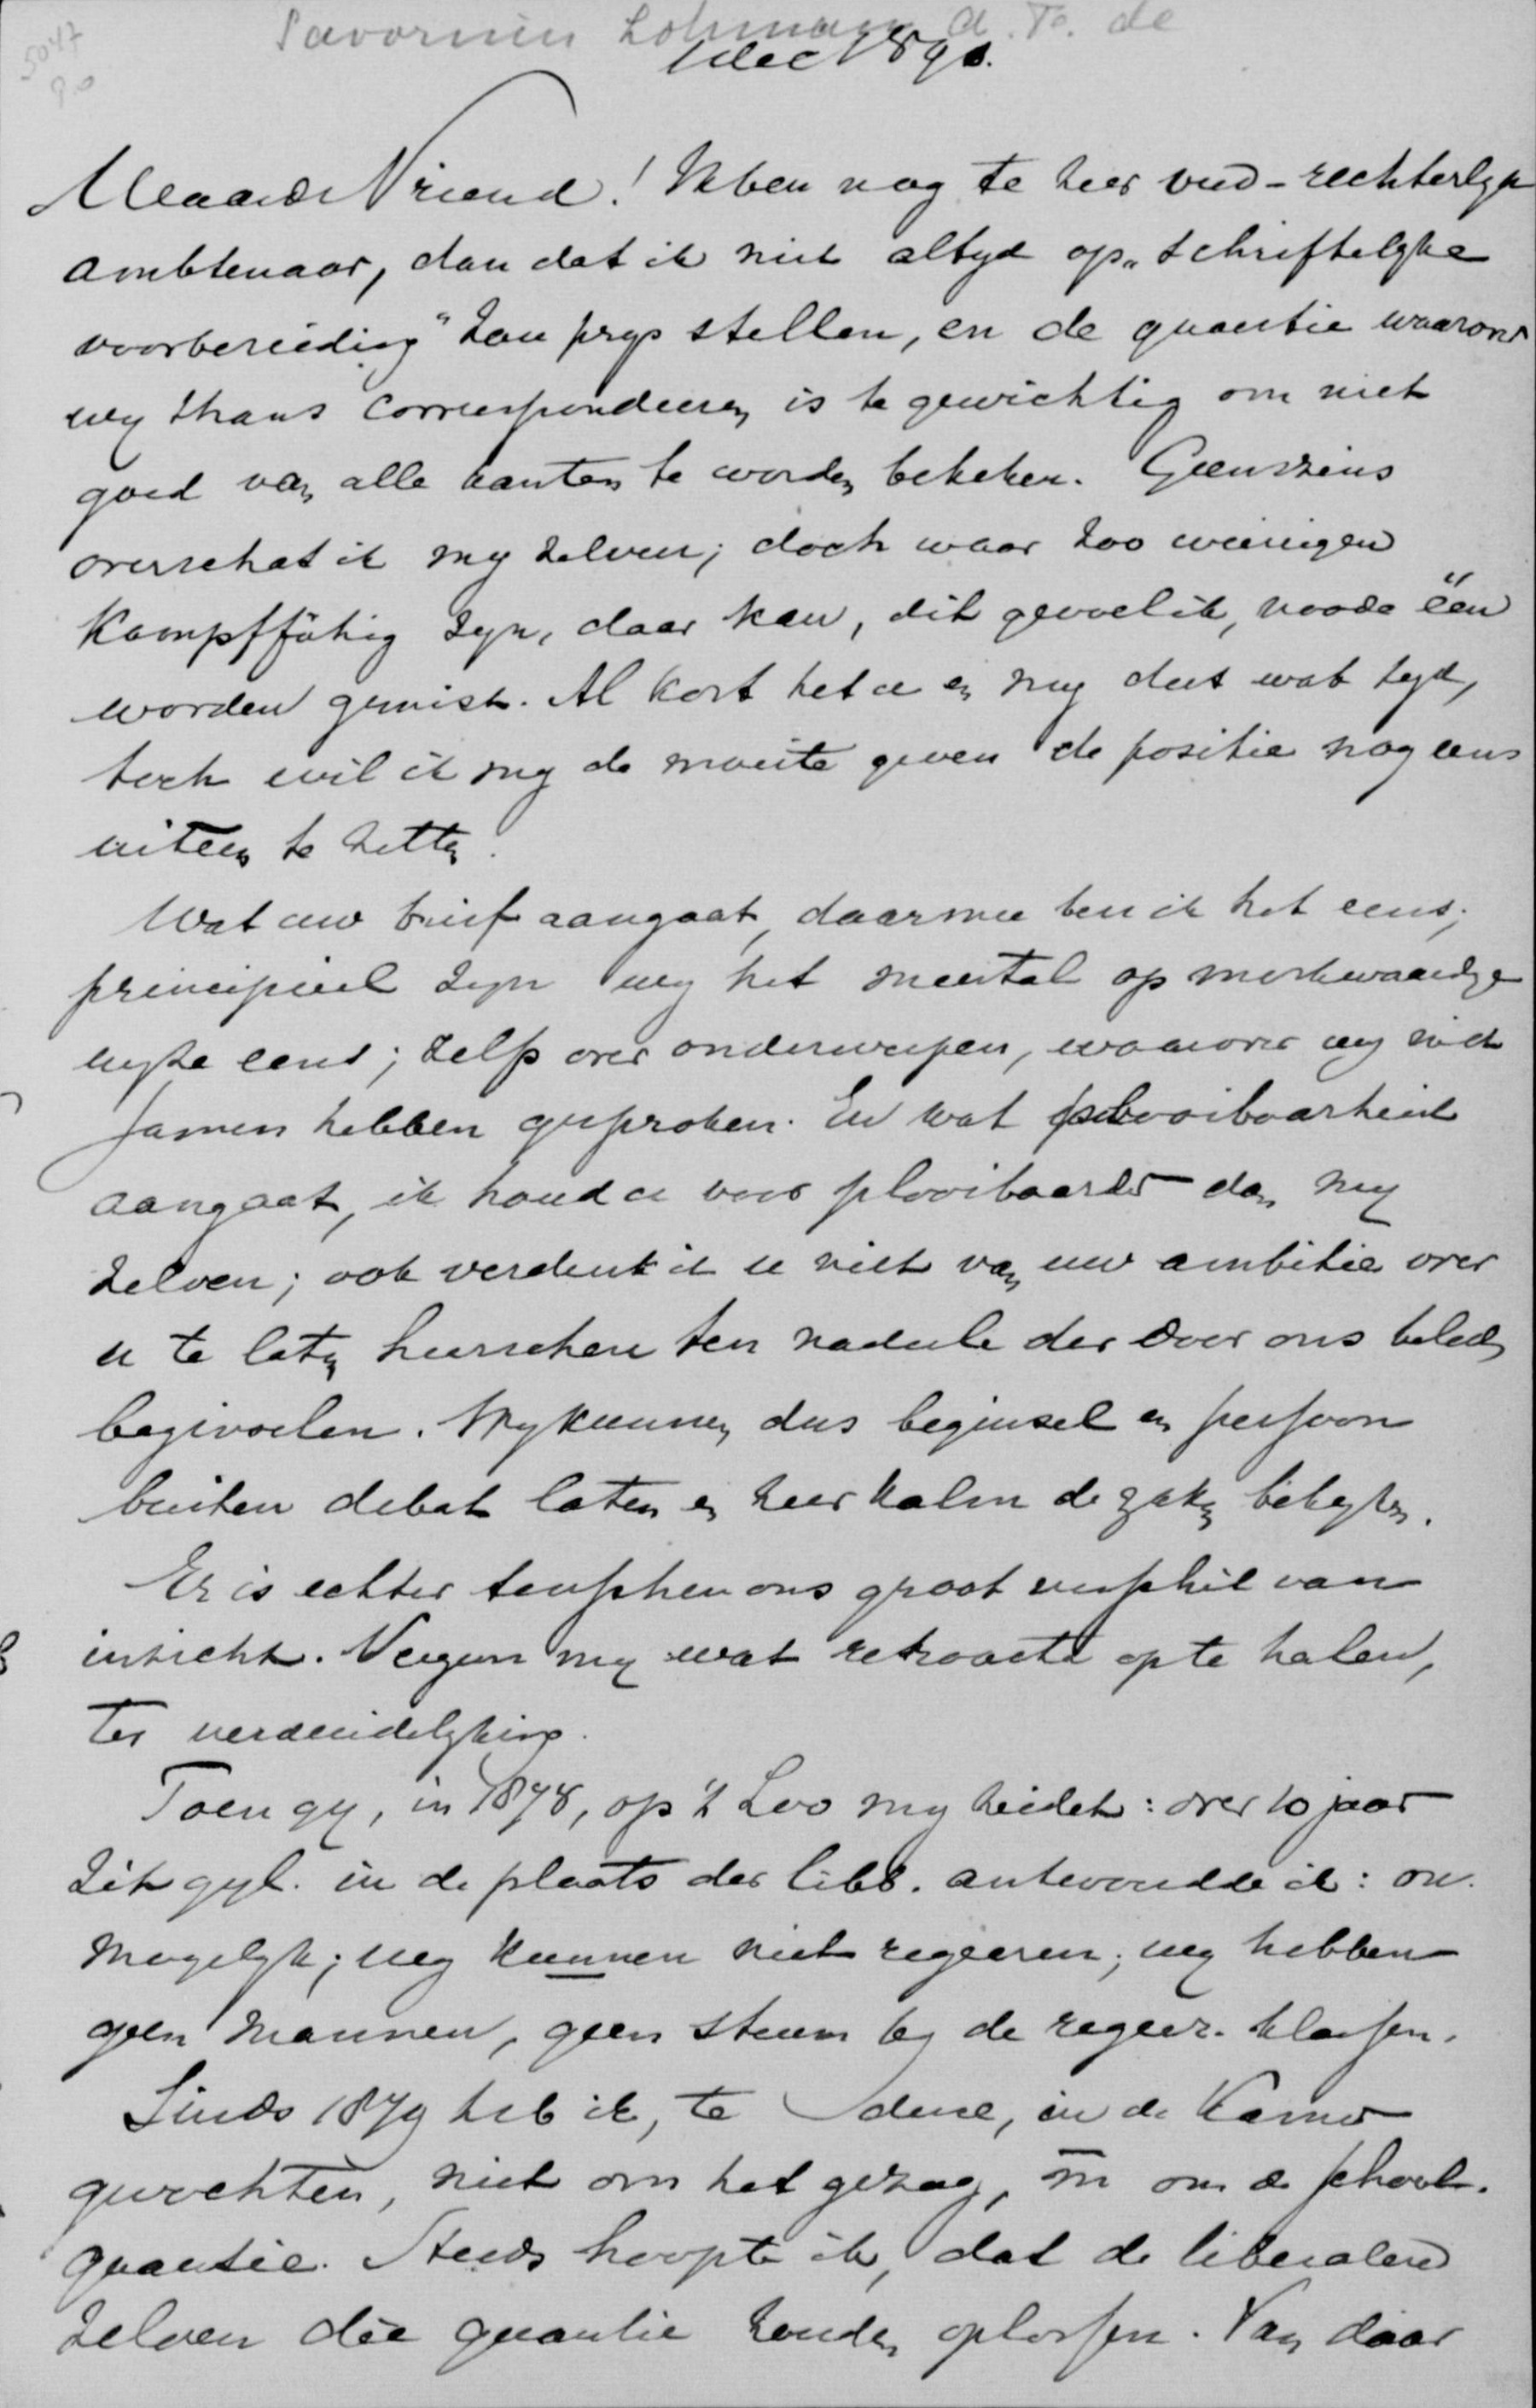 5047
90
Savornin Lohman A. F. de
1 Dec 1890.
Waarde Vriend! Ik ben nog te zeer oud-rechterlyk
ambtenaar, dan dat ik niet altyd op „schriftelyke
voorbereiding" zou prys stellen, en de quaestie waarover
wy thans correspondeeren is te gewichtig om niet
goed van alle kanten te worden bekeken. Geenszins
overschat ik my zelven; doch waar zoo weinigen
kampffähig zyn, daar kan, dit gevoel ik, noode één
worden gemist. Al kost het u en my dus wat tyd,
toch wil ik my de moeite geven de positie nog eens
uiteen te zetten.
Wat uw brief aangaat, daarmee ben ik het eens;
principieel zyn wy het meestal op merkwaardige
wyze eens; zelfs over onderwerpen, waarover wy niet
samen hebben gesproken. En wat plooibaarheid
aangaat, ik houd u voor plooibaarder dan my
zelven; ook verdenk ik u niet van uw ambitie over
u te laten heerschen ten nadeele der door ons beleden
beginselen. Wy kunnen dus beginsel en persoon
buiten debat laten en zeer kalm de zaken bekyken.
Er is echter tusschen ons groot verschil van
inzicht. Vergun my wat retroacta op te halen,
ter verduidelyking.
Toen gy, in 1878, op 't Loo my zeidet: over 10 jaar
zit gyl. in de plaats der libb. antwoordde ik: on-
mogelyk; wy kunnen niet regeeren; wy hebben
geen mannen, geen steun by de regeer. klassen.
Sinds 1879 heb ik, te in de Kamer
gevochten, niet om het gezag, m om de school-
quaestie. Steeds hoopte ik, dat de liberalen
zelven die quaestie zouden oplossen. Van daar